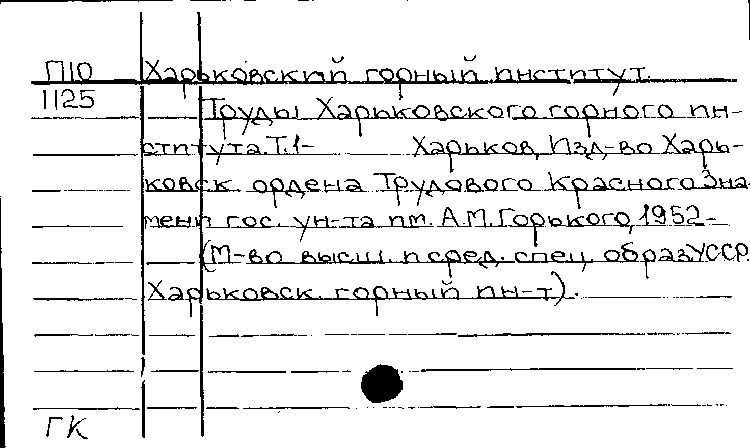 П10 Харьковский горный институт.
1125 Труды Харьковского горного ин-
ститута. Т.1- Харьков, Изд-во Харь-
ковск. ордена Трудового Красного Зна-
мени гос. ун-та им. А.М. Горького, 1952-
(М-во высш. и сред. спец. образ. УССР.
Харьковск. горный ин-т).
ГК